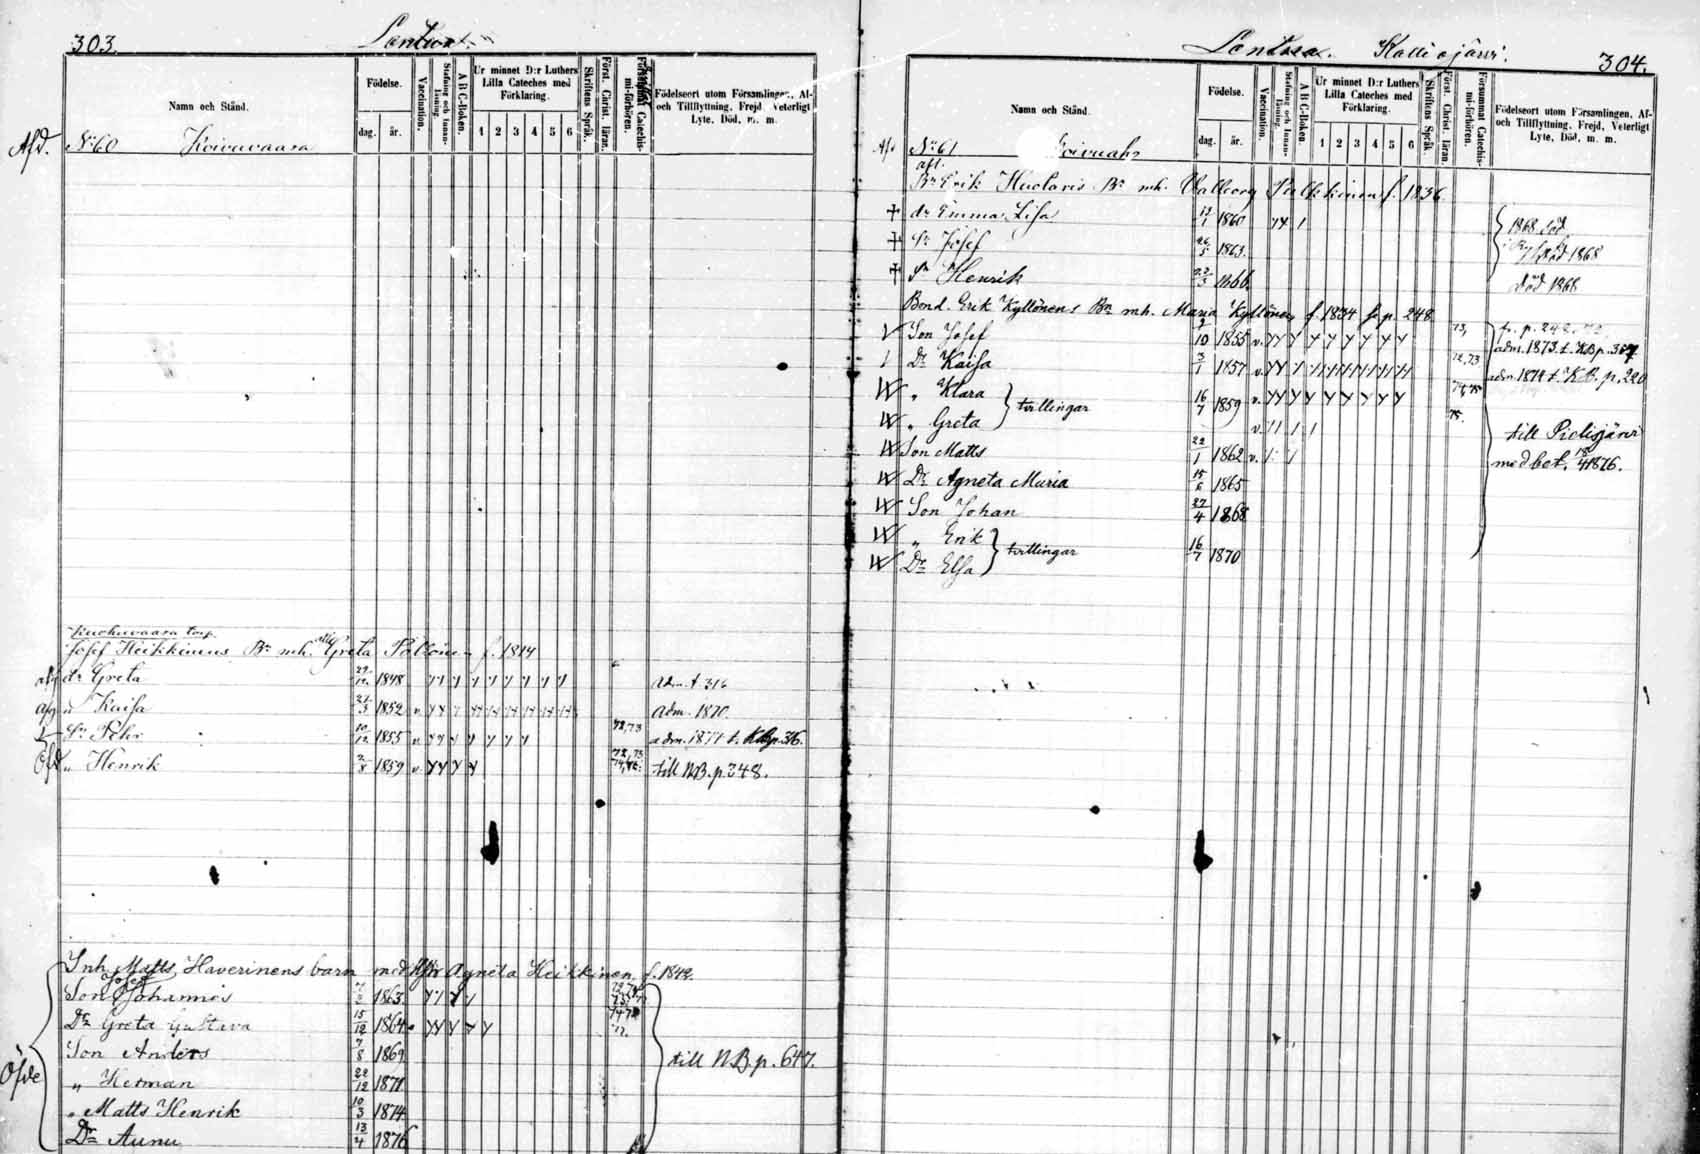 303.
Lentua.
Namn och Stånd.
Födelse.
dag. år.
Vaccination.
Stafning och Innan-läsning.
A B C-Boken.
Ur minnet D:r Luthers Lilla Cateches med Förklaring.
1 2 3 4 5 6
Skriftens Språk.
Först. Christ. läran.
Försummat Catechis-mi-förhören.
Födelseort utom Församlingen, Af- och Tillflyttning, Frejd, Veterligt Lyte, Död, m. m.
Afd. No 60 Koivuvaara
torp.
Josef Heikkinens Bn mh. Greta f. 1814
dr Greta 29/12 1848 adm. t. 316
Kaisa 21/3 1852 v. adm. 1870.
Sn Pehr 10/12 1855 v. 72,73 adm. 1871 t. KB p. 316.
" Henrik 2/8 1859 v. 72,73 till NB. p. 348.
Inh. Matts Haverinens barn med Agneta Heikkinen, f. 1842.
Son Johannes 1863
Dr Greta Gustava 15/12 1864
Son Anders 7/8 1869 till NB. p. 647.
" Herman 22/12 1871
" Matts Henrik 10/3 1874
Dr Aunu 13/4 1876
304.
Lentua. Kalliojärvi.
Namn och Stånd.
Födelse.
dag. år.
Vaccination.
Stafning och Innan-läsning.
A B C-Boken.
Ur minnet D:r Luthers Lilla Cateches med Förklaring.
1 2 3 4 5 6
Skriftens Språk.
Först. Christ. läran.
Försummat Catechis-mi-förhören.
Födelseort utom Församlingen, Af- och Tillflyttning, Frejd, Veterligt Lyte, Död, m. m.
Afd No 61 Koivuaho
afl.
Bn Erik Huotaris Bn mh. Valborg Pulkkinen f. 1836.
+ dr Emma Lisa 1860 1868 död
+ Sn Josef 26/5 1863. död 1868
+ Sn Henrik 22/3 1866. död 1868
Bond. Erik Kyllönens Bn mh. Maria Kyllönen f. 1834 se p. 248
Son Josef 2/10 1855 v. 73, fr. p. 242.
adm. 1873. t. KB p. 307
Dr Kaisa 3/1 1857 v. 72,73 adm. 1874 t. KB. p. 220
" Klara } tvillingar 16/7 1859 v. 74,75
" Greta v. 75. till Pielisjärvi
Son Matts 22/1 1862 v. med bet. 18/4 1876.
Dr Agneta Maria 15/6 1865
Son Johan 27/4 1868
" Erik } tvillingar 16/7 1870
Dr Elsa